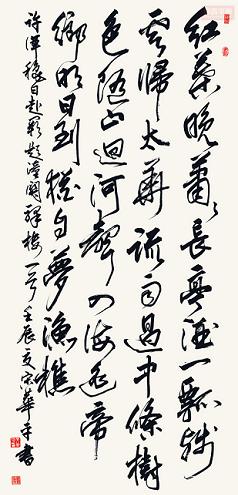 紅葉晚蕭々長亭酒一瓢殘
雲歸太華疏雨過中條樹
色隨山迴河聲入海遙帝
鄉明日到猶自夢漁樵
許渾秋日赴闕題潼關驛樓一首壬辰夏宋華平書